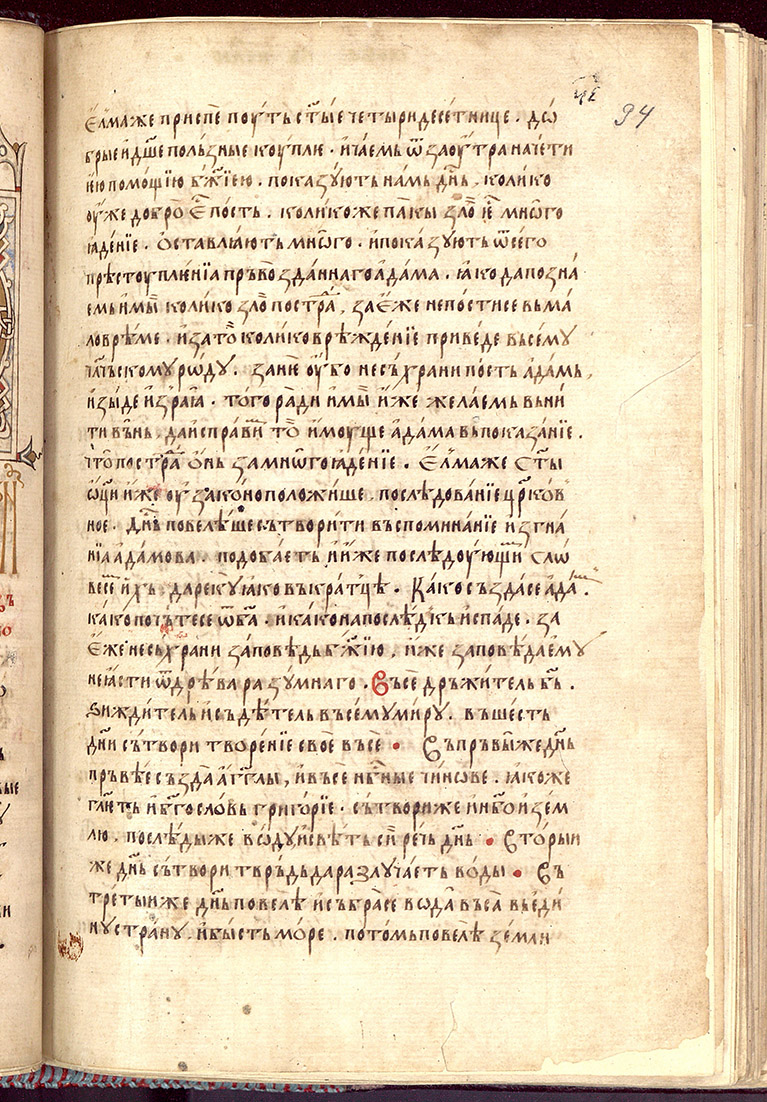 94
Елмаже приспѣ поуть ст҃ые четыридесетнице · дѡ
брые и дш҃е пользные коуплю · и чаемь ѿ заоутра начети
ею помощїю бж҃їею · показують намь дн҃ь , колико
оуже добро ѥ҆ пость · колико же пакы зло ѥ҆ мнѡго
ꙗденїе · ѡставлꙗють мнѡго · и показують ѿ сего
прѣстоупленїа пръвозданнаго Адама · ꙗко да позна
емь и мы колико зло постра , за еже не постисе вь ма
ло врѣме · и за то колико врѣжденїе приведе въсему
чл҃чьскому рѡду · зане оубо не съхрани пость адамь ,
изыде из раꙗ · того ради и мы иже желаемь вьни
ти вънь , да исправи то имоуще адама вь показанїе ·
что постра онь за мнѡгоꙗденїе · Елмаже ст҃ы
ѡц҃и иже оу законоположише , послѣдованїе цр҃ков
ное · дн҃ь повелѣше сътворити въспоминанїе изгна
нїа адамова · подобаеть и иже послѣдоующи слѡ
весе ихь , да рекꙋ ꙗко вь кратцѣ · Како създасе ада ·
како почьтесе ѿ бг҃а · и како на послѣдькь испаде · за
еже несъхрани заповѣдь бж҃їю , иже заповѣда ему
не ꙗсти ѿ дрѣва разумнаго · Въседръжитель бь ·
Зиждитель и съдѣтель въсему миру · въ шесть
дн҃и сътвори творенїе свое въсе · Въ пръвыже дн҃ь
пръвѣе създа аг҃глы , и въсе нбн҃ые чинове · ꙗкоже
гл҃еть и бг҃ословь григорїе · сътвори же и нб҃о и зем
лю · послѣдьже вѡду и свѣть си речь дн҃ь · Въторыи
же дн҃ь сътвори тврьдь да разлучаеть воды · Въ
третыи же дн҃ь повелѣ и събрасе вѡда въса вь еди
ну страну · и бысть море · потомь повелѣ земли